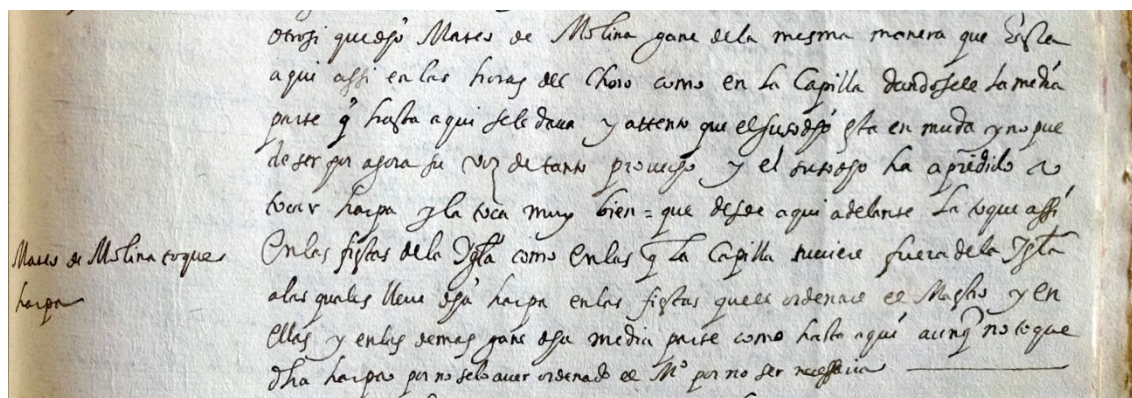 otrosi que dho Mateo de Molina gane de la mesma manera que hasta
aqui assi en las horas del Choro como en la Capilla dandosele la media
parte q̃ hasta aqui se le daua y attento que el susodho esta en muda y no pue
de ser por agora su voz de tanto prouecho y el susodho ha aprẽdido a
tocar harpa y la toca muy bien = que desde aqui adelante la toque assi
Mateo de Molina toque
harpa
en las fiestas de la Ygla como en las q̃ la Capilla tuuiere fuera de la Ygla
a las quales lleue dha harpa en las fiestas que le ordenare el Maestro y en
ellas y en las demas gane dha media parte como hasta aqui aunq̃ no toque
dha harpa por no selo auer ordenado el M.º por no ser necessaria